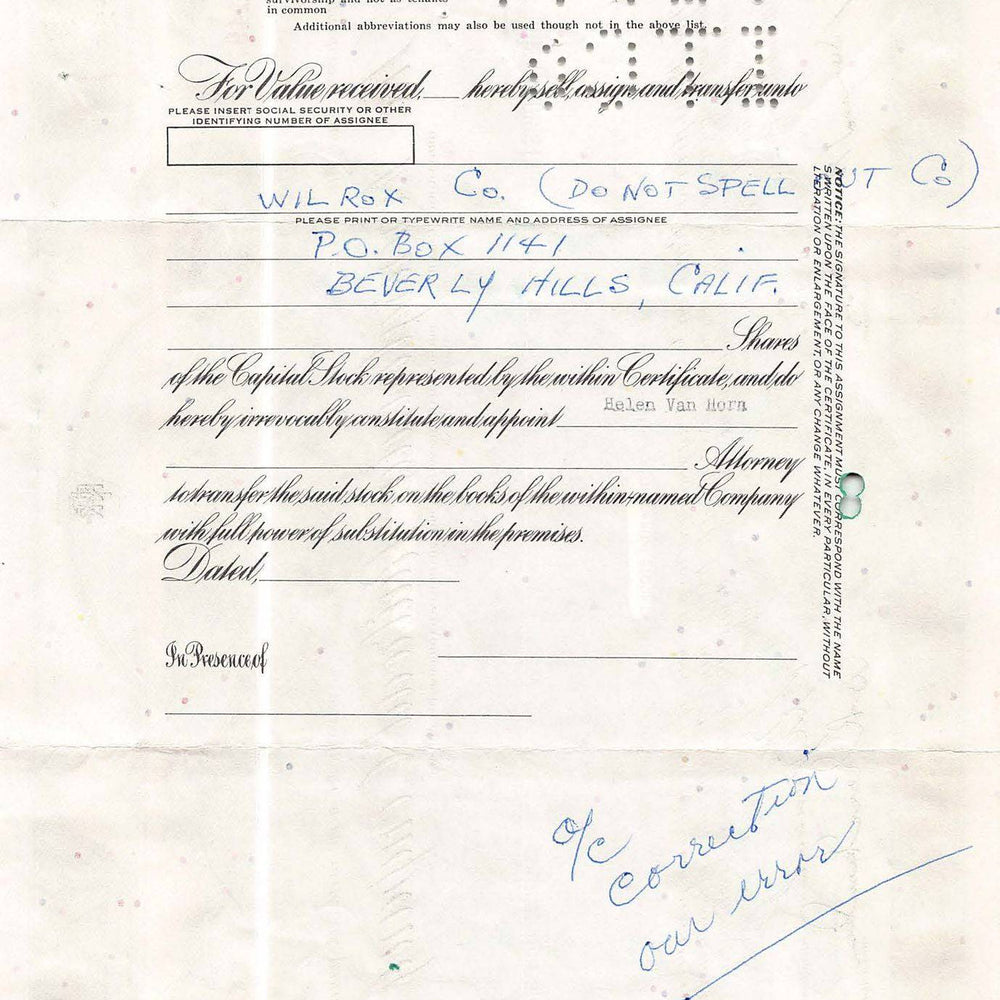 in common
Additional abbreviations may also be used though not in the above list.
For Value received, ___ hereby sell, assign and transfer unto
PLEASE INSERT SOCIAL SECURITY OR OTHER
IDENTIFYING NUMBER OF ASSIGNEE
WILROX Co. (DO NOT SPELL OUT Co)
PLEASE PRINT OR TYPEWRITE NAME AND ADDRESS OF ASSIGNEE
P.O. BOX 1141
BEVERLY HILLS, CALIF.
Shares
of the Capital Stock represented by the within Certificate, and do
hereby irrevocably constitute and appoint Helen Van Horn
Attorney
to transfer the said stock on the books of the within-named Company
with full power of substitution in the premises.
Dated,
In Presence of
NOTICE: THE SIGNATURE TO THIS ASSIGNMENT MUST CORRESPOND WITH THE NAME
AS WRITTEN UPON THE FACE OF THE CERTIFICATE, IN EVERY PARTICULAR, WITHOUT
ALTERATION OR ENLARGEMENT, OR ANY CHANGE WHATEVER.
o/c
correction
our error